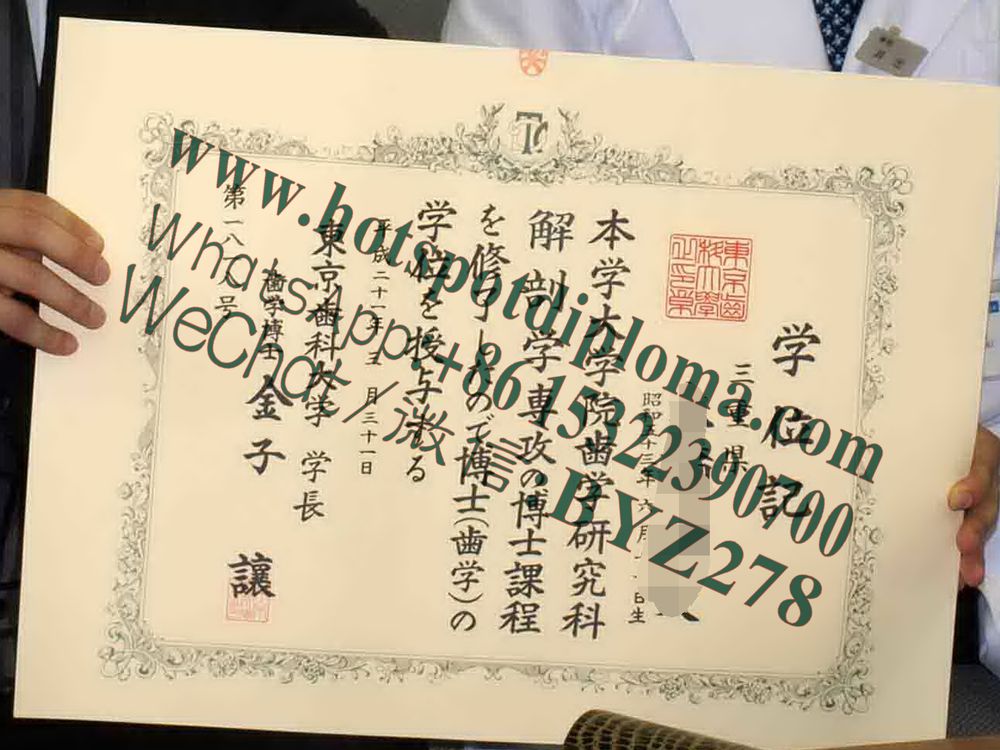 TDC
学位記
東京齒科大學之印章
三重県
昭和五十三年六月 日生
本学大学院歯学研究科
解剖学専攻の博士課程
を修了したので博士(歯学)の
学位を授与する
平成二十一年三月三十一日
東京歯科大学 学長
歯学博士 金子 讓
www.hotspotdiploma.com
Whatsapp:+86 15322390700
WeChat/微信:BYZ278